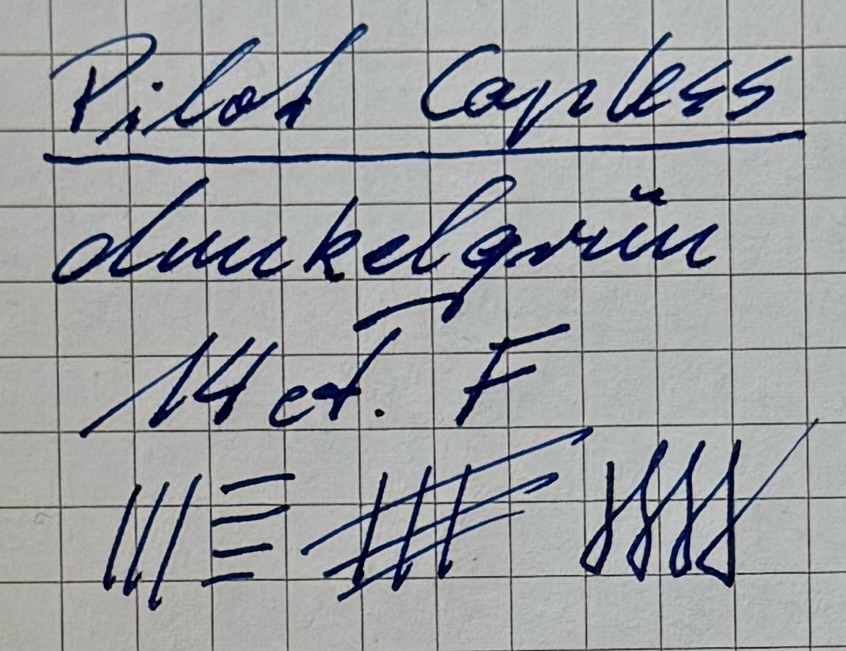 Pilot Capless
dunkelgrün
14 ct. F